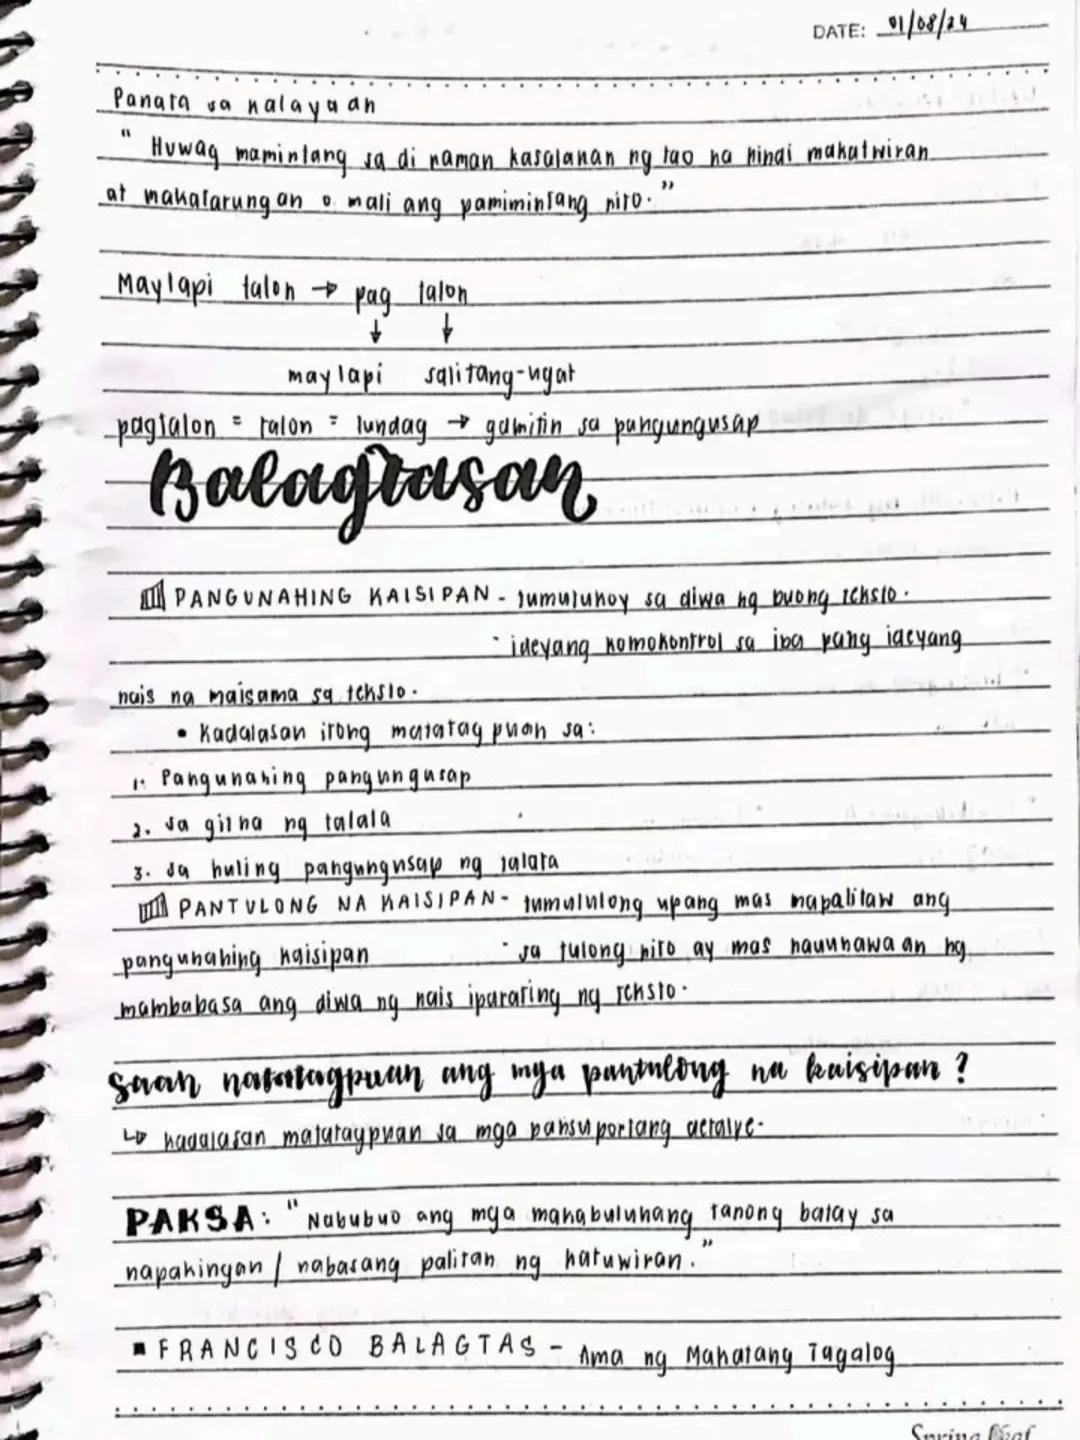 DATE: 01/08/24
Panata sa kalayaan
" Huwag mamintang sa di naman kasalanan ng tao na hindi makatwiran
at makatarungan o mali ang pamimintang nito."
Maylapi talon → pag talon
↓ ↓
maylapi salitang-ugat
pagtalon = talon = lundag → gamitin sa pangungusap
Balagtasan
PANGUNAHING KAISIPAN - tumutukoy sa diwa ng buong teksto.
- ideyang komokontrol sa iba pang ideyang
nais na maisama sa teksto.
• Kadalasan itong matatagpuan sa:
1. Pangunahing pangungusap
2. sa gitna ng talata
3. sa huling pangungusap ng talata
PANTULONG NA KAISIPAN- tumutulong upang mas mapalitaw ang
pangunahing kaisipan - sa tulong nito ay mas nauunawaan ng
mambabasa ang diwa ng nais iparating ng teksto.
saan natatagpuan ang mga pantulong na kaisipan ?
↳ kadalasan matatagpuan sa mga pansuportang detalye.
PAKSA: "Nabubuo ang mga makabuluhang tanong batay sa
napakingan / nabasang palitan ng katuwiran."
▪ FRANCISCO BALAGTAS - Ama ng Makatang Tagalog
Spring Leaf